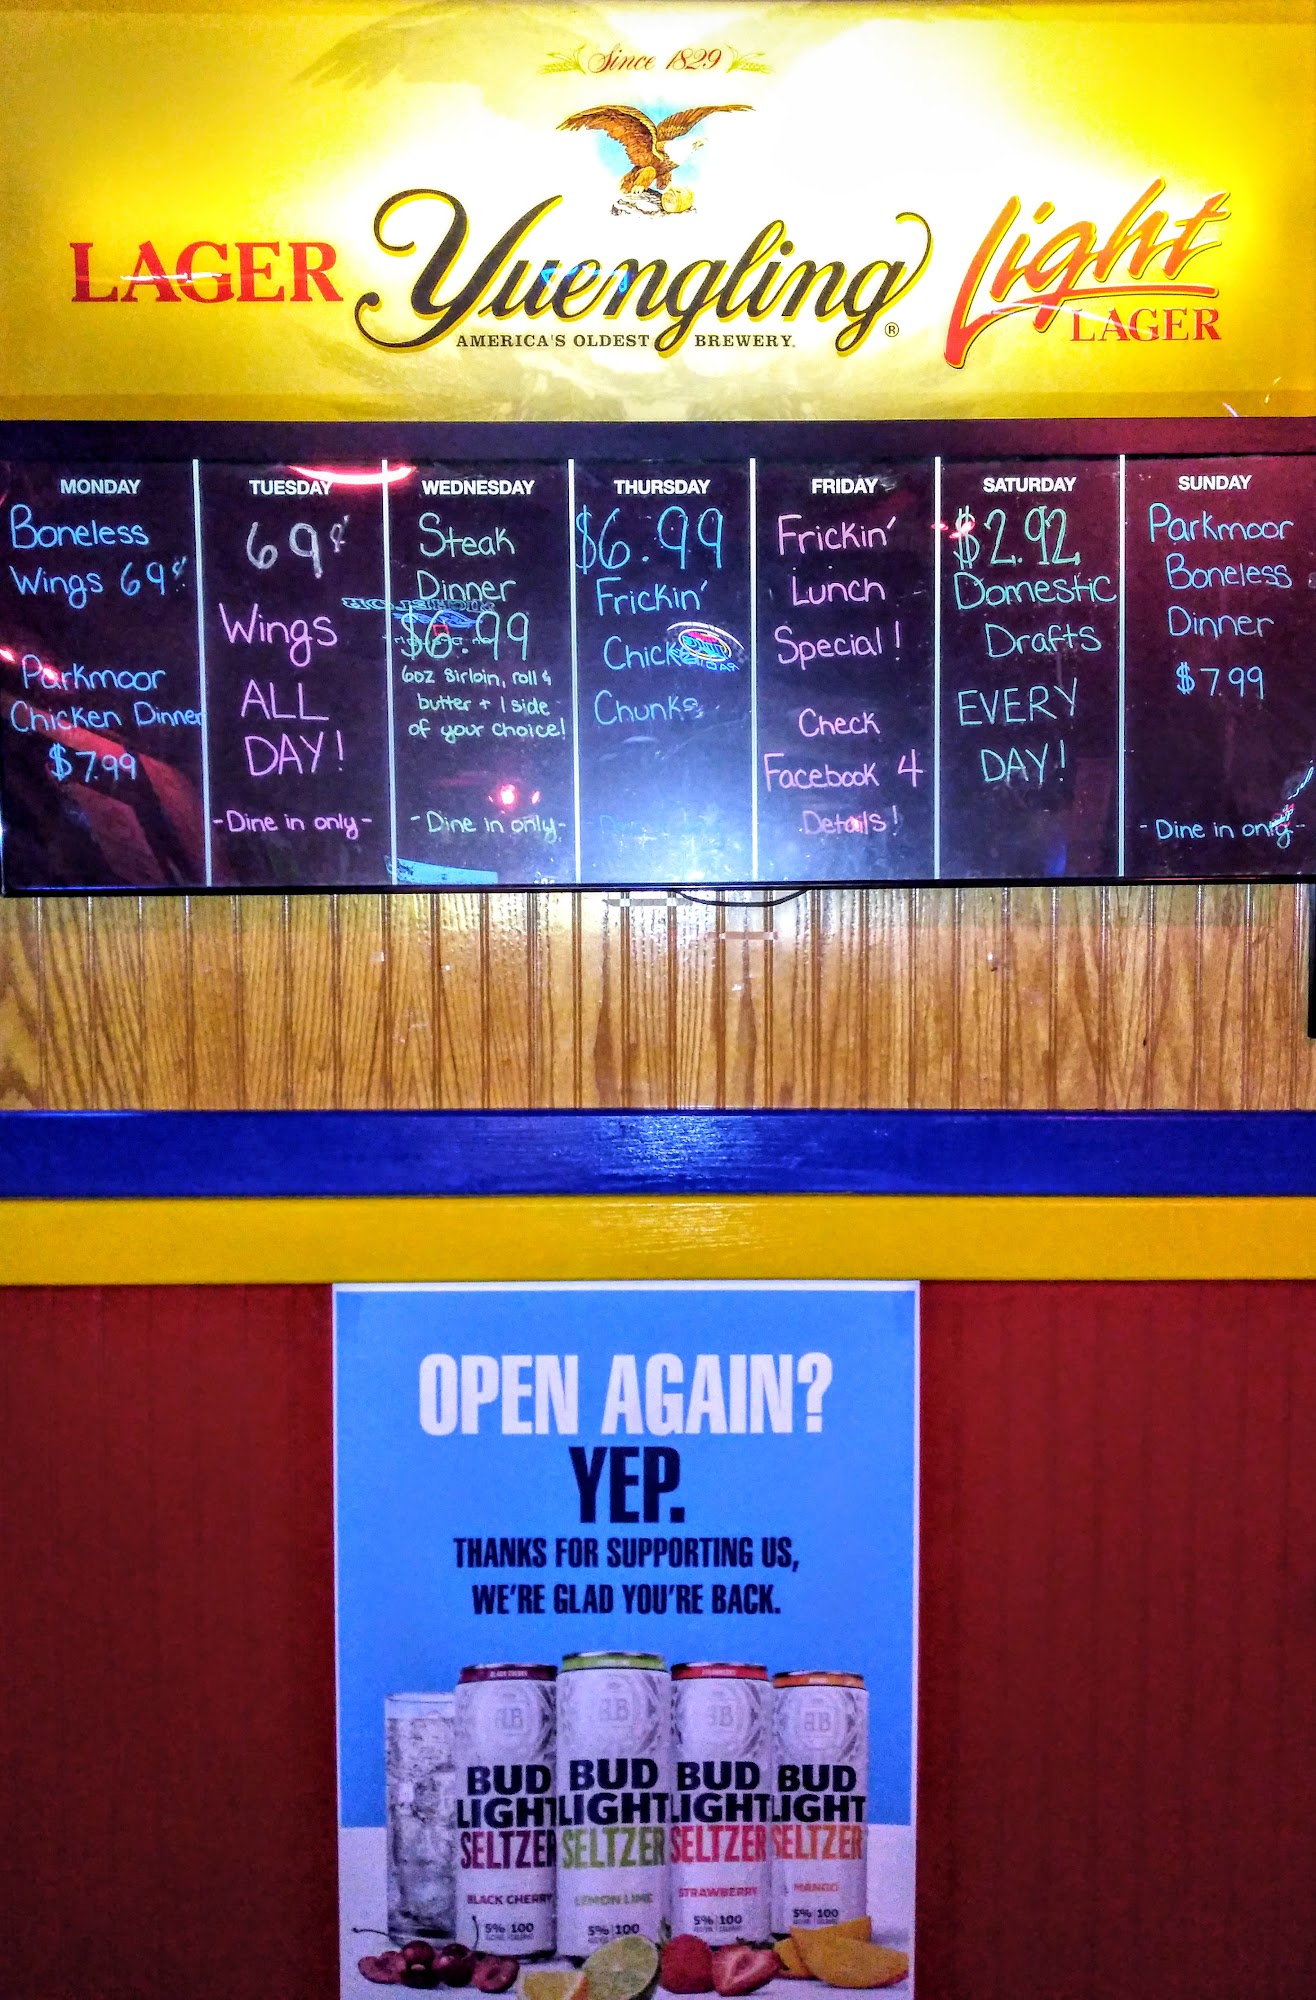 Since 1829
LAGER
Yuengling®
AMERICA'S OLDEST BREWERY.
Light
LAGER
MONDAY
Boneless
Wings 69¢
Parkmoor
Chicken Dinner
$7.99
TUESDAY
69¢
Wings
ALL
DAY!
-Dine in only-
WEDNESDAY
Steak
Dinner
$6.99
6oz Sirloin, roll &
butter + 1 side
of your choice!
-Dine in only-
THURSDAY
$6.99
Frickin'
Chicken
Chunks
FRIDAY
Frickin'
Lunch
Special!
Check
Facebook 4
Details!
SATURDAY
$2.92
Domestic
Drafts
EVERY
DAY!
SUNDAY
Parkmoor
Boneless
Dinner
$7.99
- Dine in only-
OPEN AGAIN?
YEP.
THANKS FOR SUPPORTING US,
WE'RE GLAD YOU'RE BACK.
BUD
LIGHT
SELTZER
BLACK CHERRY
5% 100
BUD
LIGHT
SELTZER
LEMON LIME
5% 100
BUD
LIGHT
SELTZER
STRAWBERRY
5% 100
BUD
LIGHT
SELTZER
MANGO
5% 100